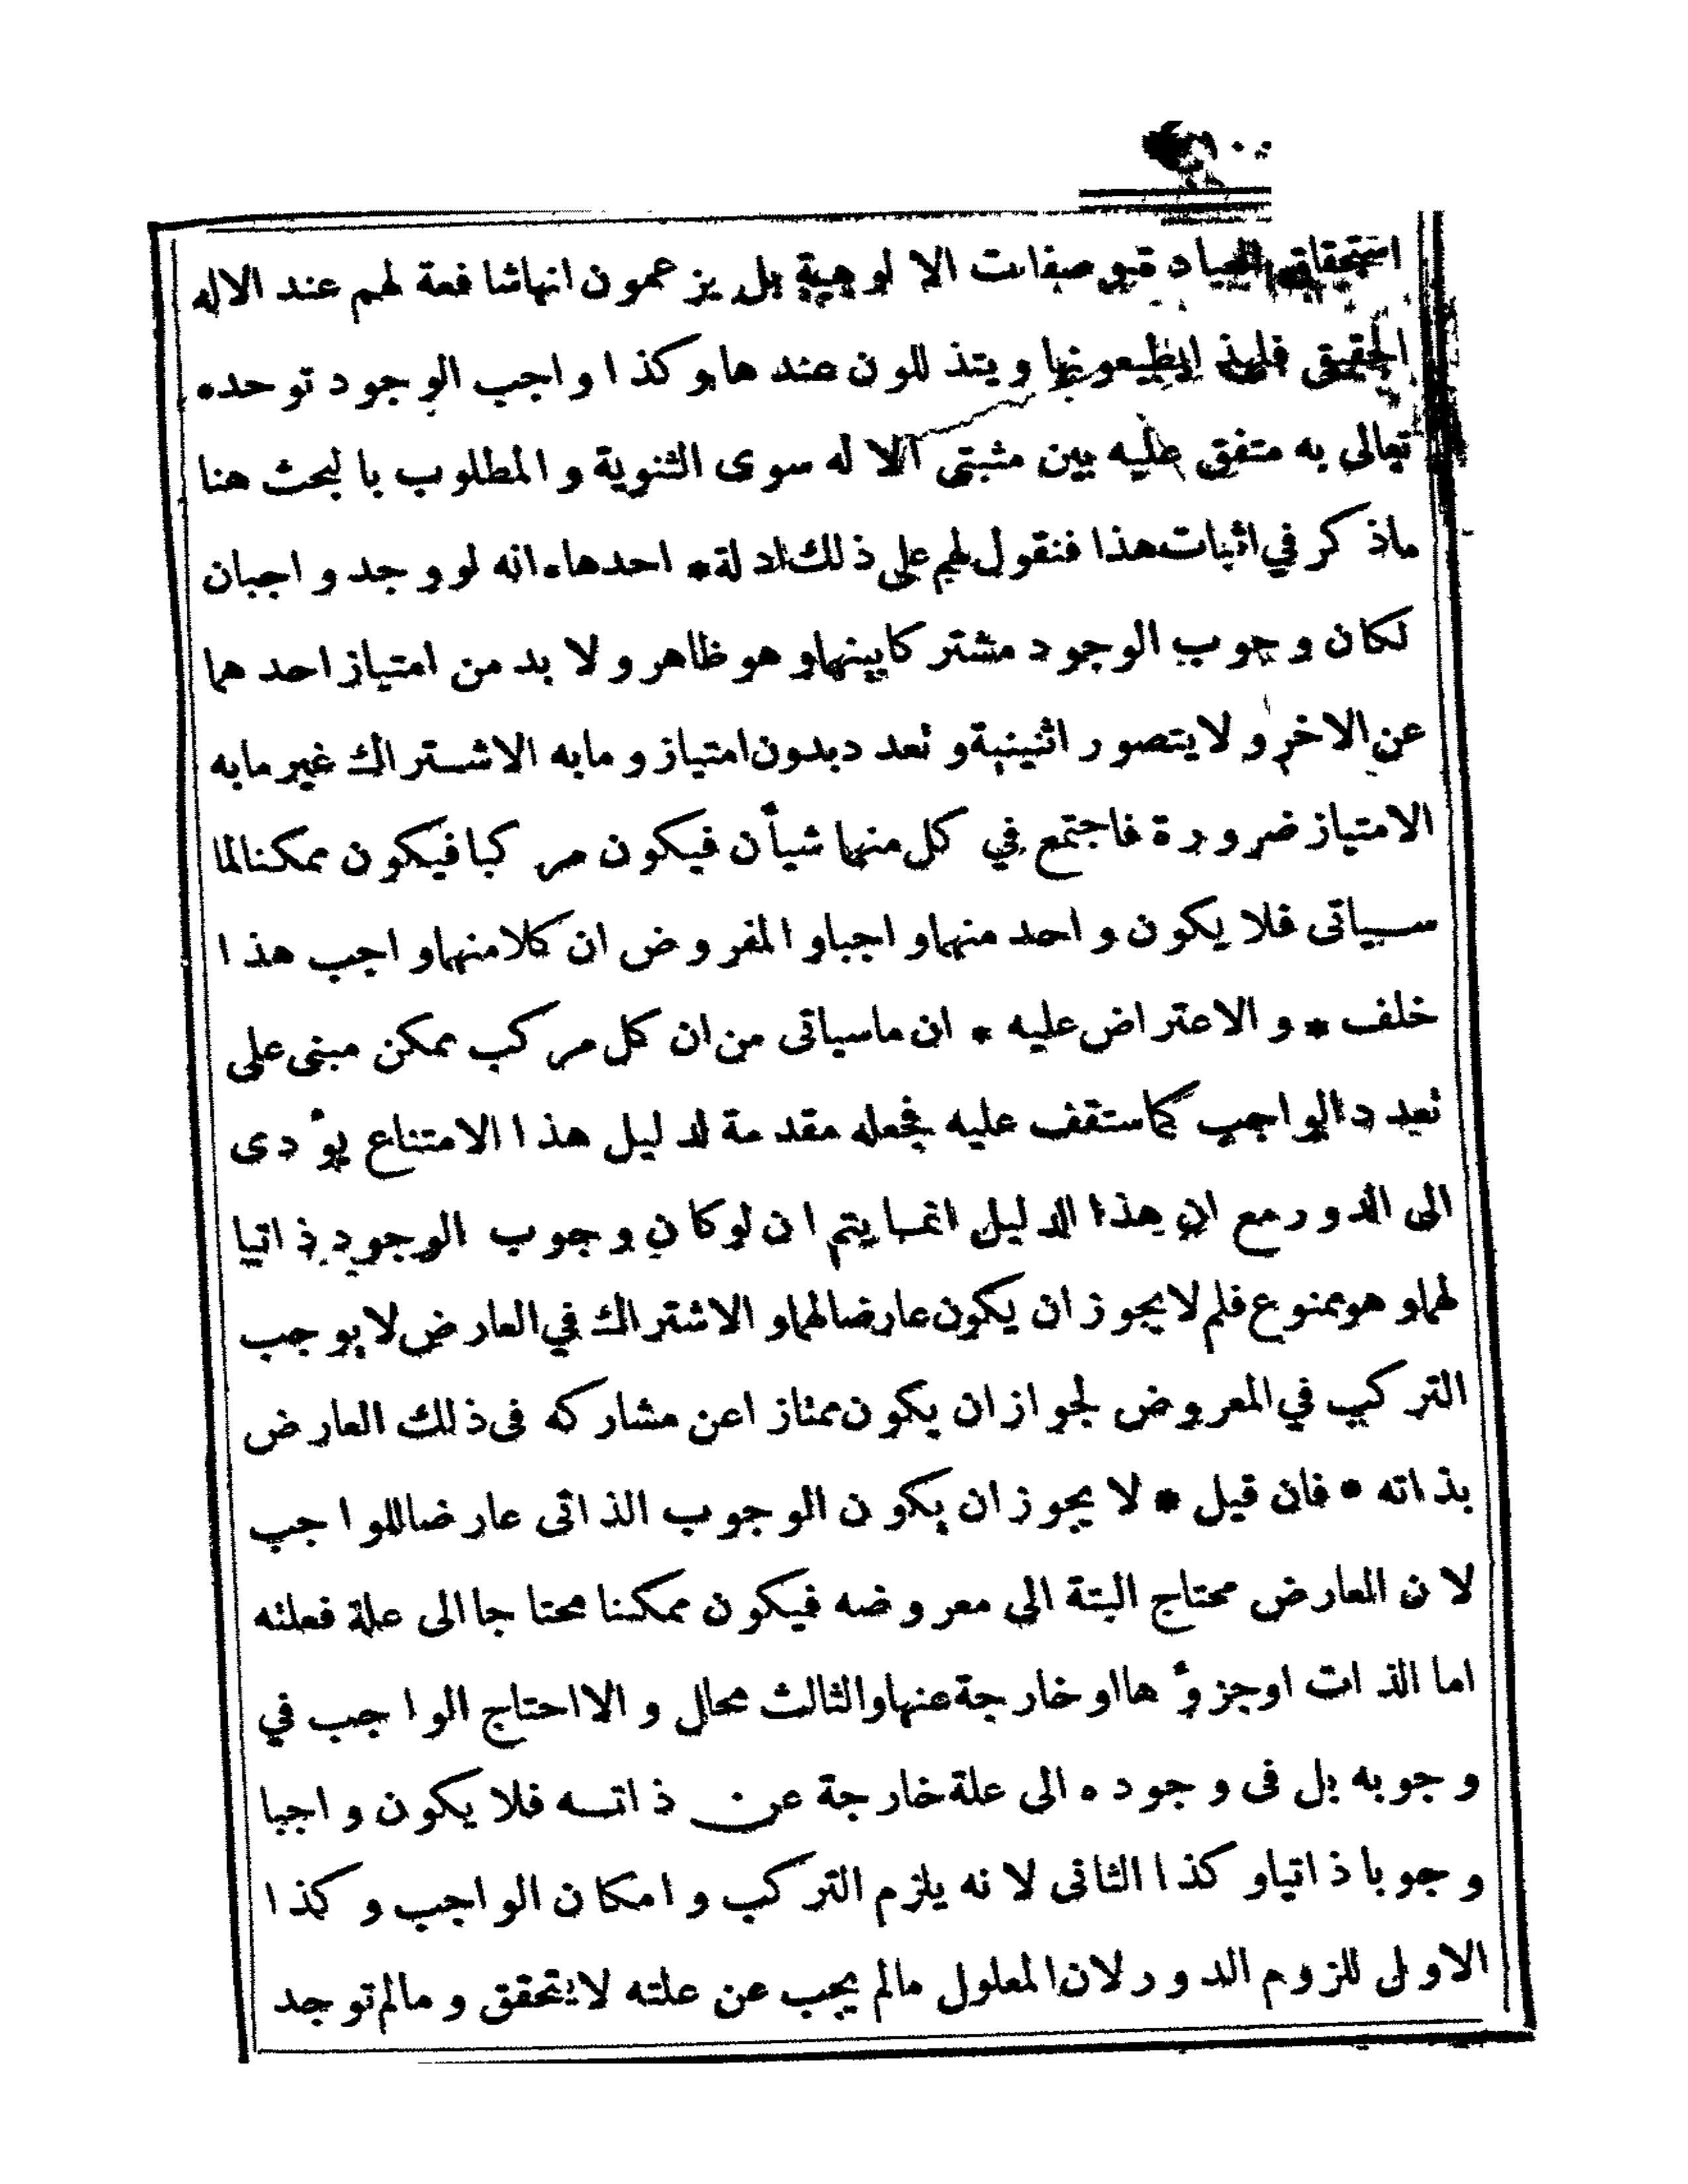 استحقاق العبادة وصفات الالوهية بل يزعمون انها شافعة لهم عند الاله
الحقيقى فلهذا يطيعونها ويتذللون عندها وكذا واجب الوجود توحده
تعالى به متفق عليه بين مثبتى الاله سوى الثنوية والمطلوب بالبحث هنا
ماذكر في اثبات هذا فنقول لهم على ذلك ادلة * احدها انه لو وجد واجبان
لكان وجوب الوجود مشتركا بينهما وهو ظاهر ولا بد من امتياز احدهما
عن الاخر ولا يتصور اثنينية وتعدد بدون امتياز ومابه الاشتراك غير مابه
الامتياز ضرورة فاجتمع في كل منهما شيأن فيكون مركبا فيكون ممكنا لما
سياتى فلا يكون واحد منهما واجبا والمفروض ان كلا منهما واجب هذا
خلف * والاعتراض عليه * ان ماسياتى من ان كل مركب ممكن مبنى على
تعدد الواجب كما ستقف عليه فجعله مقدمة لدليل هذا الامتناع يؤدى
الى الدور مع ان هذا الدليل انما يتم ان لو كان وجوب الوجود ذاتيا
لهما وهو ممنوع فلم لا يجوز ان يكون عارضا لهما والاشتراك في العارض لا يوجب
التركيب في المعروض لجواز ان يكون ممتازا عن مشاركه فى ذلك العارض
بذاته * فان قيل * لا يجوز ان يكون الوجوب الذاتى عارضا للواجب
لان العارض محتاج البتة الى معروضه فيكون ممكنا محتاجا الى علة فعلته
اما الذات او جزؤها او خارجة عنها والثالث محال والا احتاج الواجب في
وجوبه بل فى وجوده الى علة خارجة عن ذاته فلا يكون واجبا
وجوبا ذاتيا وكذا الثانى لانه يلزم التركب وامكان الواجب وكذا
الاولى للزوم الدور لان المعلول مالم يجب عن علته لا يتحقق ومالم توجد